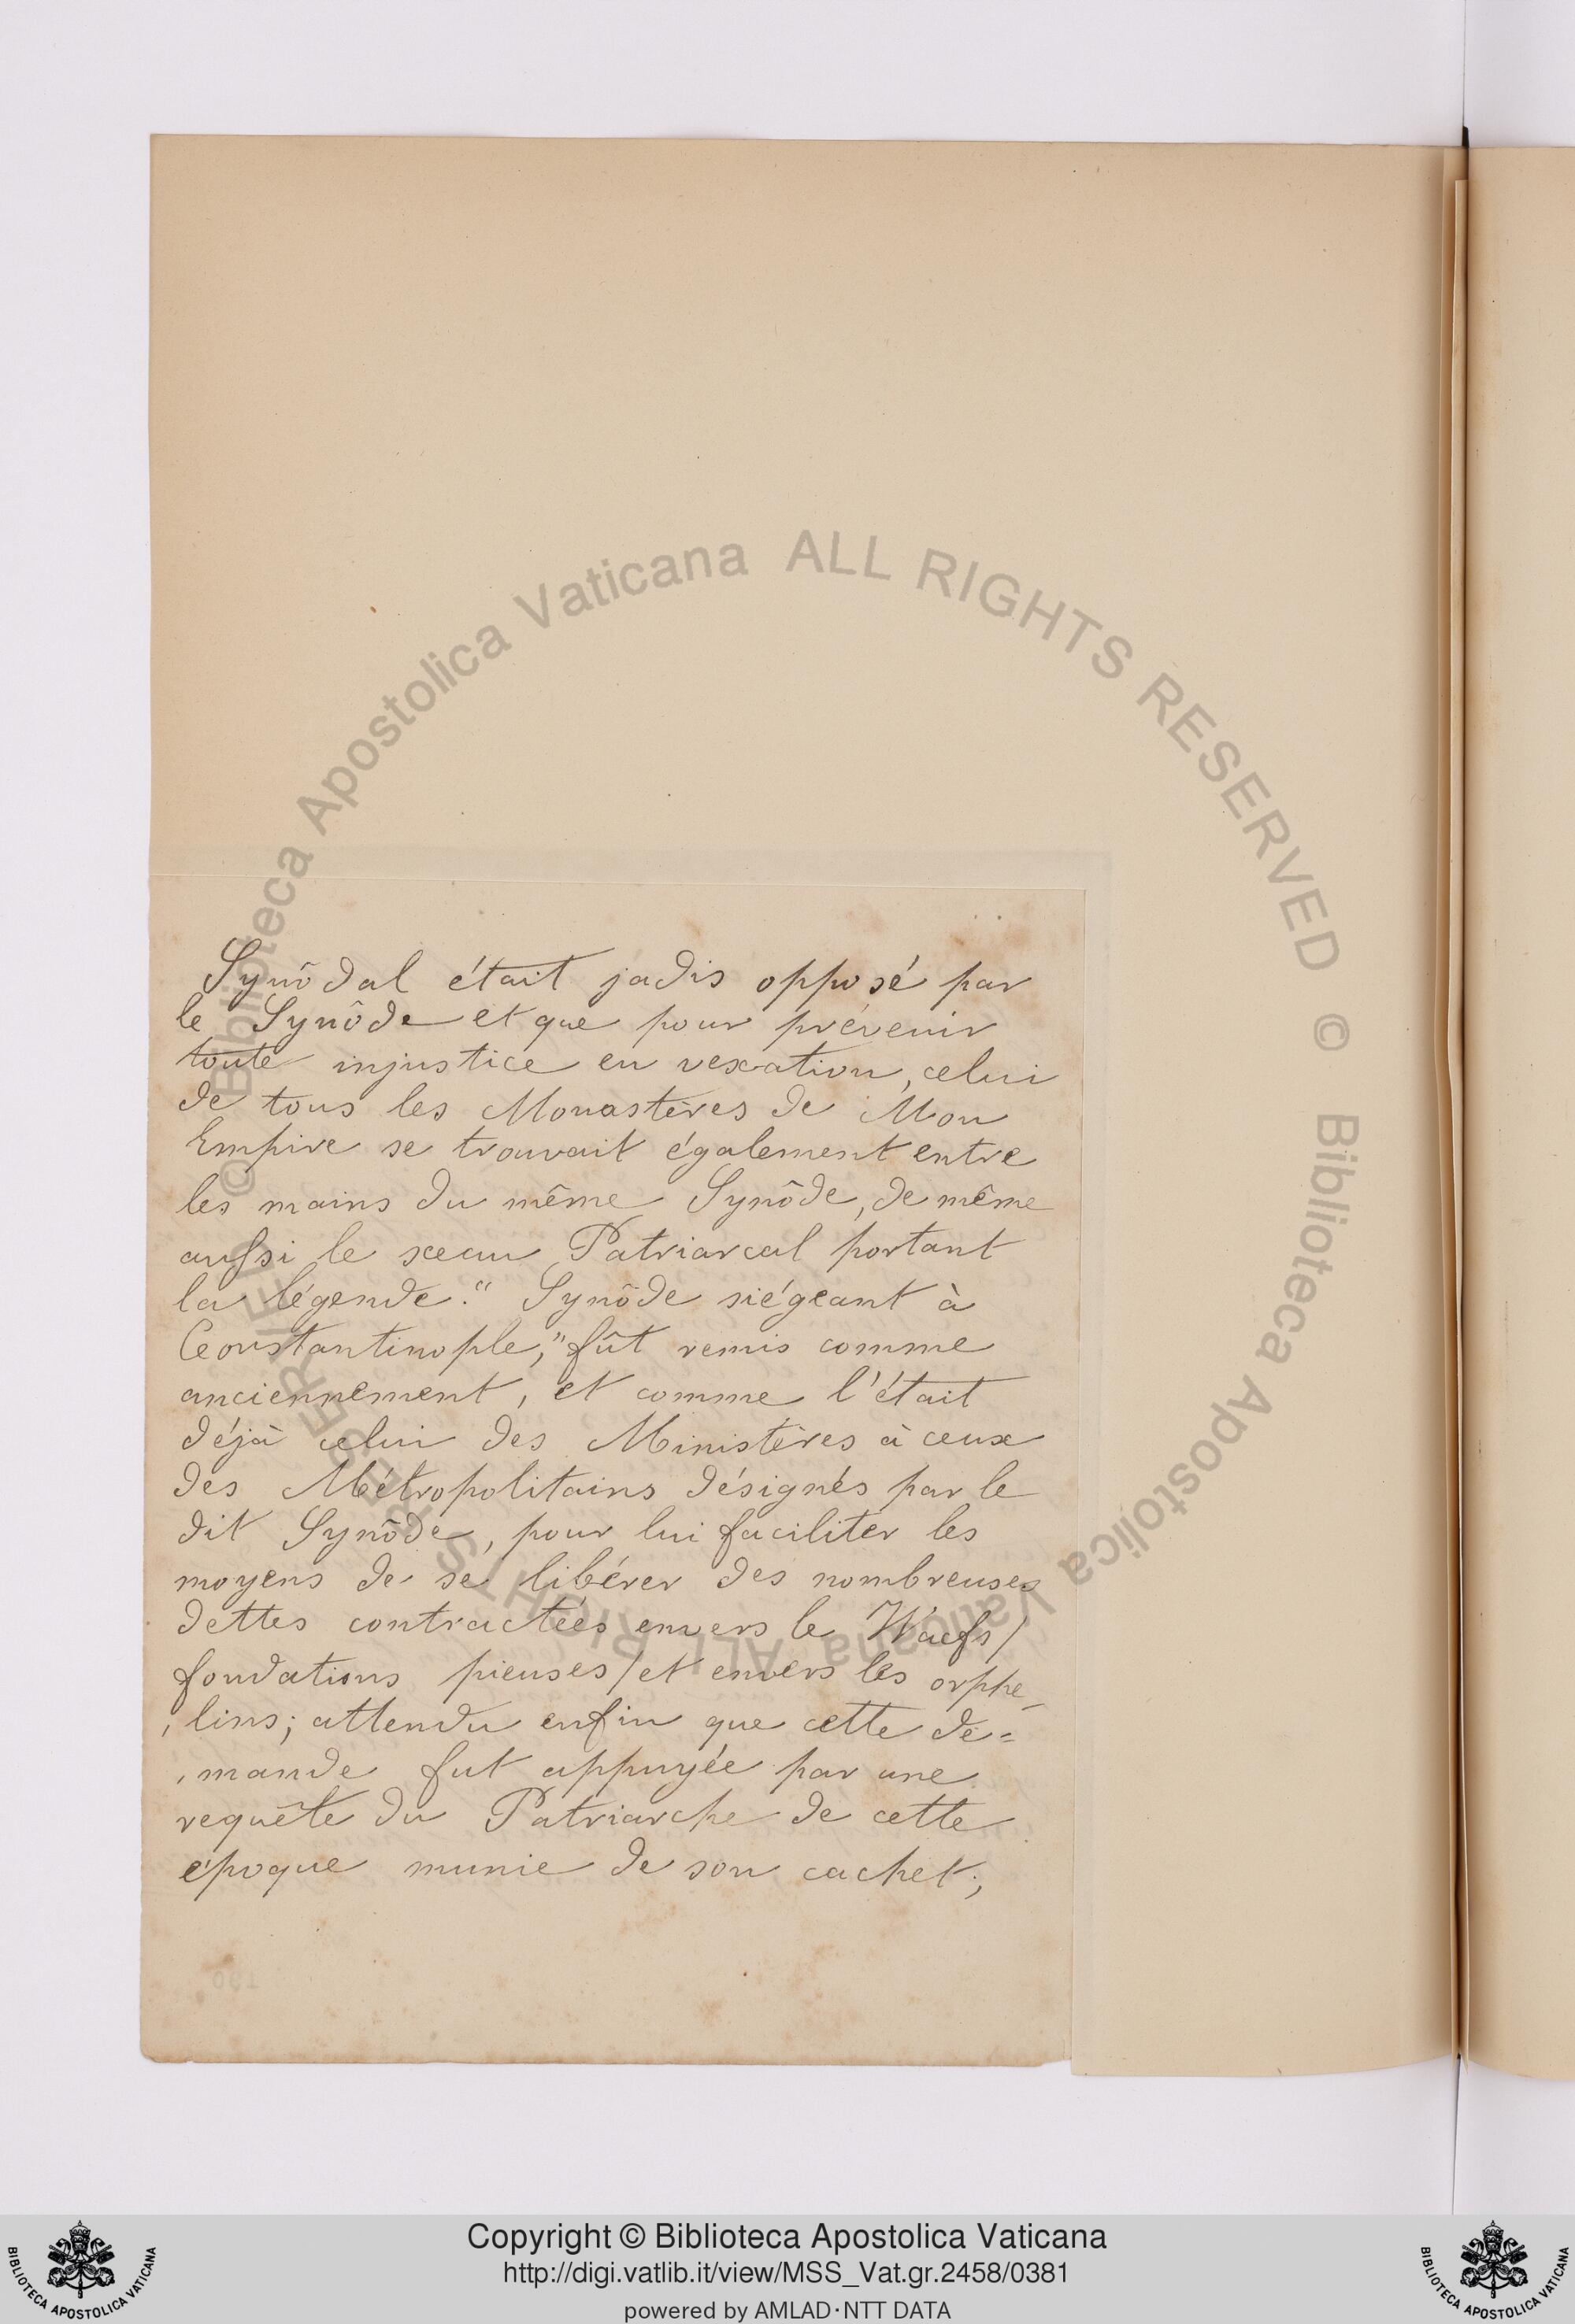 Synôdal était jadis opposé par
le Synôde et que pour prévenir
toute injustice en vexation, celui
de tous les Monastères de Mon
Empire se trouvait également entre
les mains du même Synôde, de même
aussi le sceau Patriarcal portant
la légende: "Synôde siégeant à
Constantinople," fût remis comme
anciennement, et comme l'était
déjà celui des Ministères à ceux
des Métropolitains désignés par le
dit Synôde, pour lui faciliter les
moyens de se libérer des nombreuses
dettes contractées envers le Wacfs/
fondations pieuses/et envers les orphe-
,lins; attendu enfin que cette de=
,mande fut appuyée par une
requête du Patriarche de cette
époque munie de son cachet;
130
© Biblioteca Apostolica Vaticana ALL RIGHTS RESERVED © Biblioteca Apostolica Vaticana ALL RIGHTS RESERVED
Copyright © Biblioteca Apostolica Vaticana
http://digi.vatlib.it/view/MSS_Vat.gr.2458/0381
powered by AMLAD·NTT DATA
BIBLIOTECA APOSTOLICA VATICANA
BIBLIOTECA APOSTOLICA VATICANA